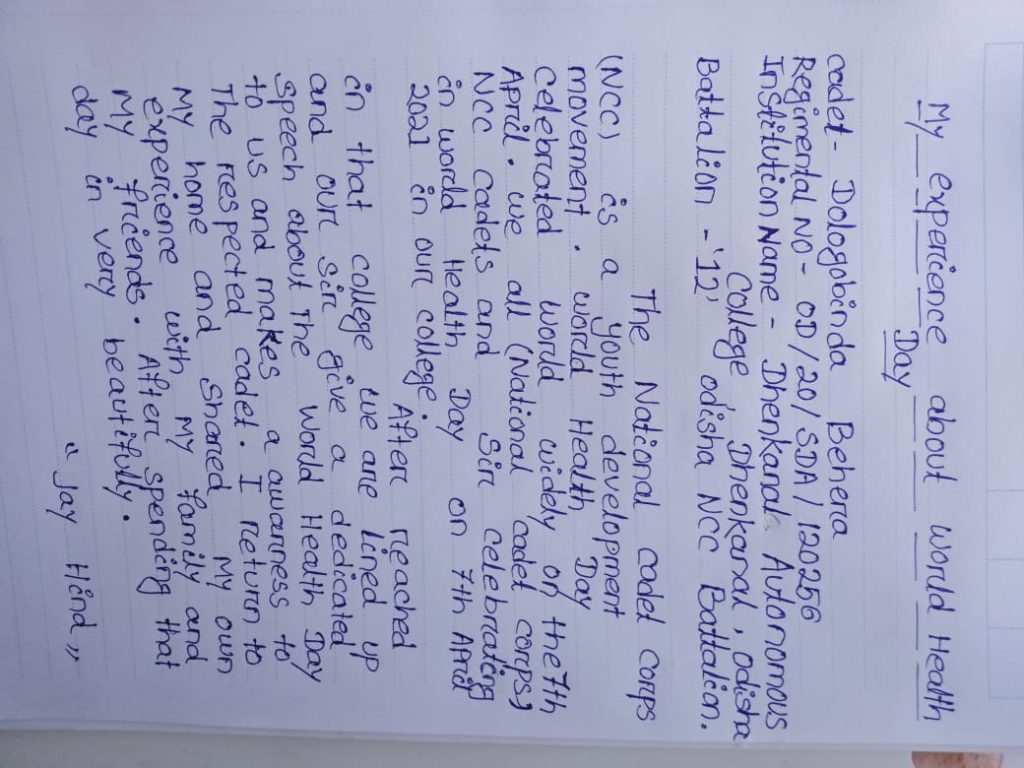 My experience about World Health
Day
cadet - Dologobinda Behera
Regimental NO - OD/20/SDA/120256
Institution Name - Dhenkanal Autonomous
College Dhenkanal, odisha
Battalion - '12' odisha NCC Battalion.
The National cadet corps
(NCC) is a youth development
movement. World Health Day
celebrated world widely on the 7th
April. we all (National cadet corps)
NCC cadets and Sir celebrating
in world Health Day on 7th April
2021 in our college.
After reached
in that college we are lined up
and our sir give a dedicated
speech about The World Health Day
to us and makes a awarness to
The respected cadet. I return to
My home and Shared My own
experience with My family and
My friends. After spending that
day in very beautifully.
"Jay Hind"